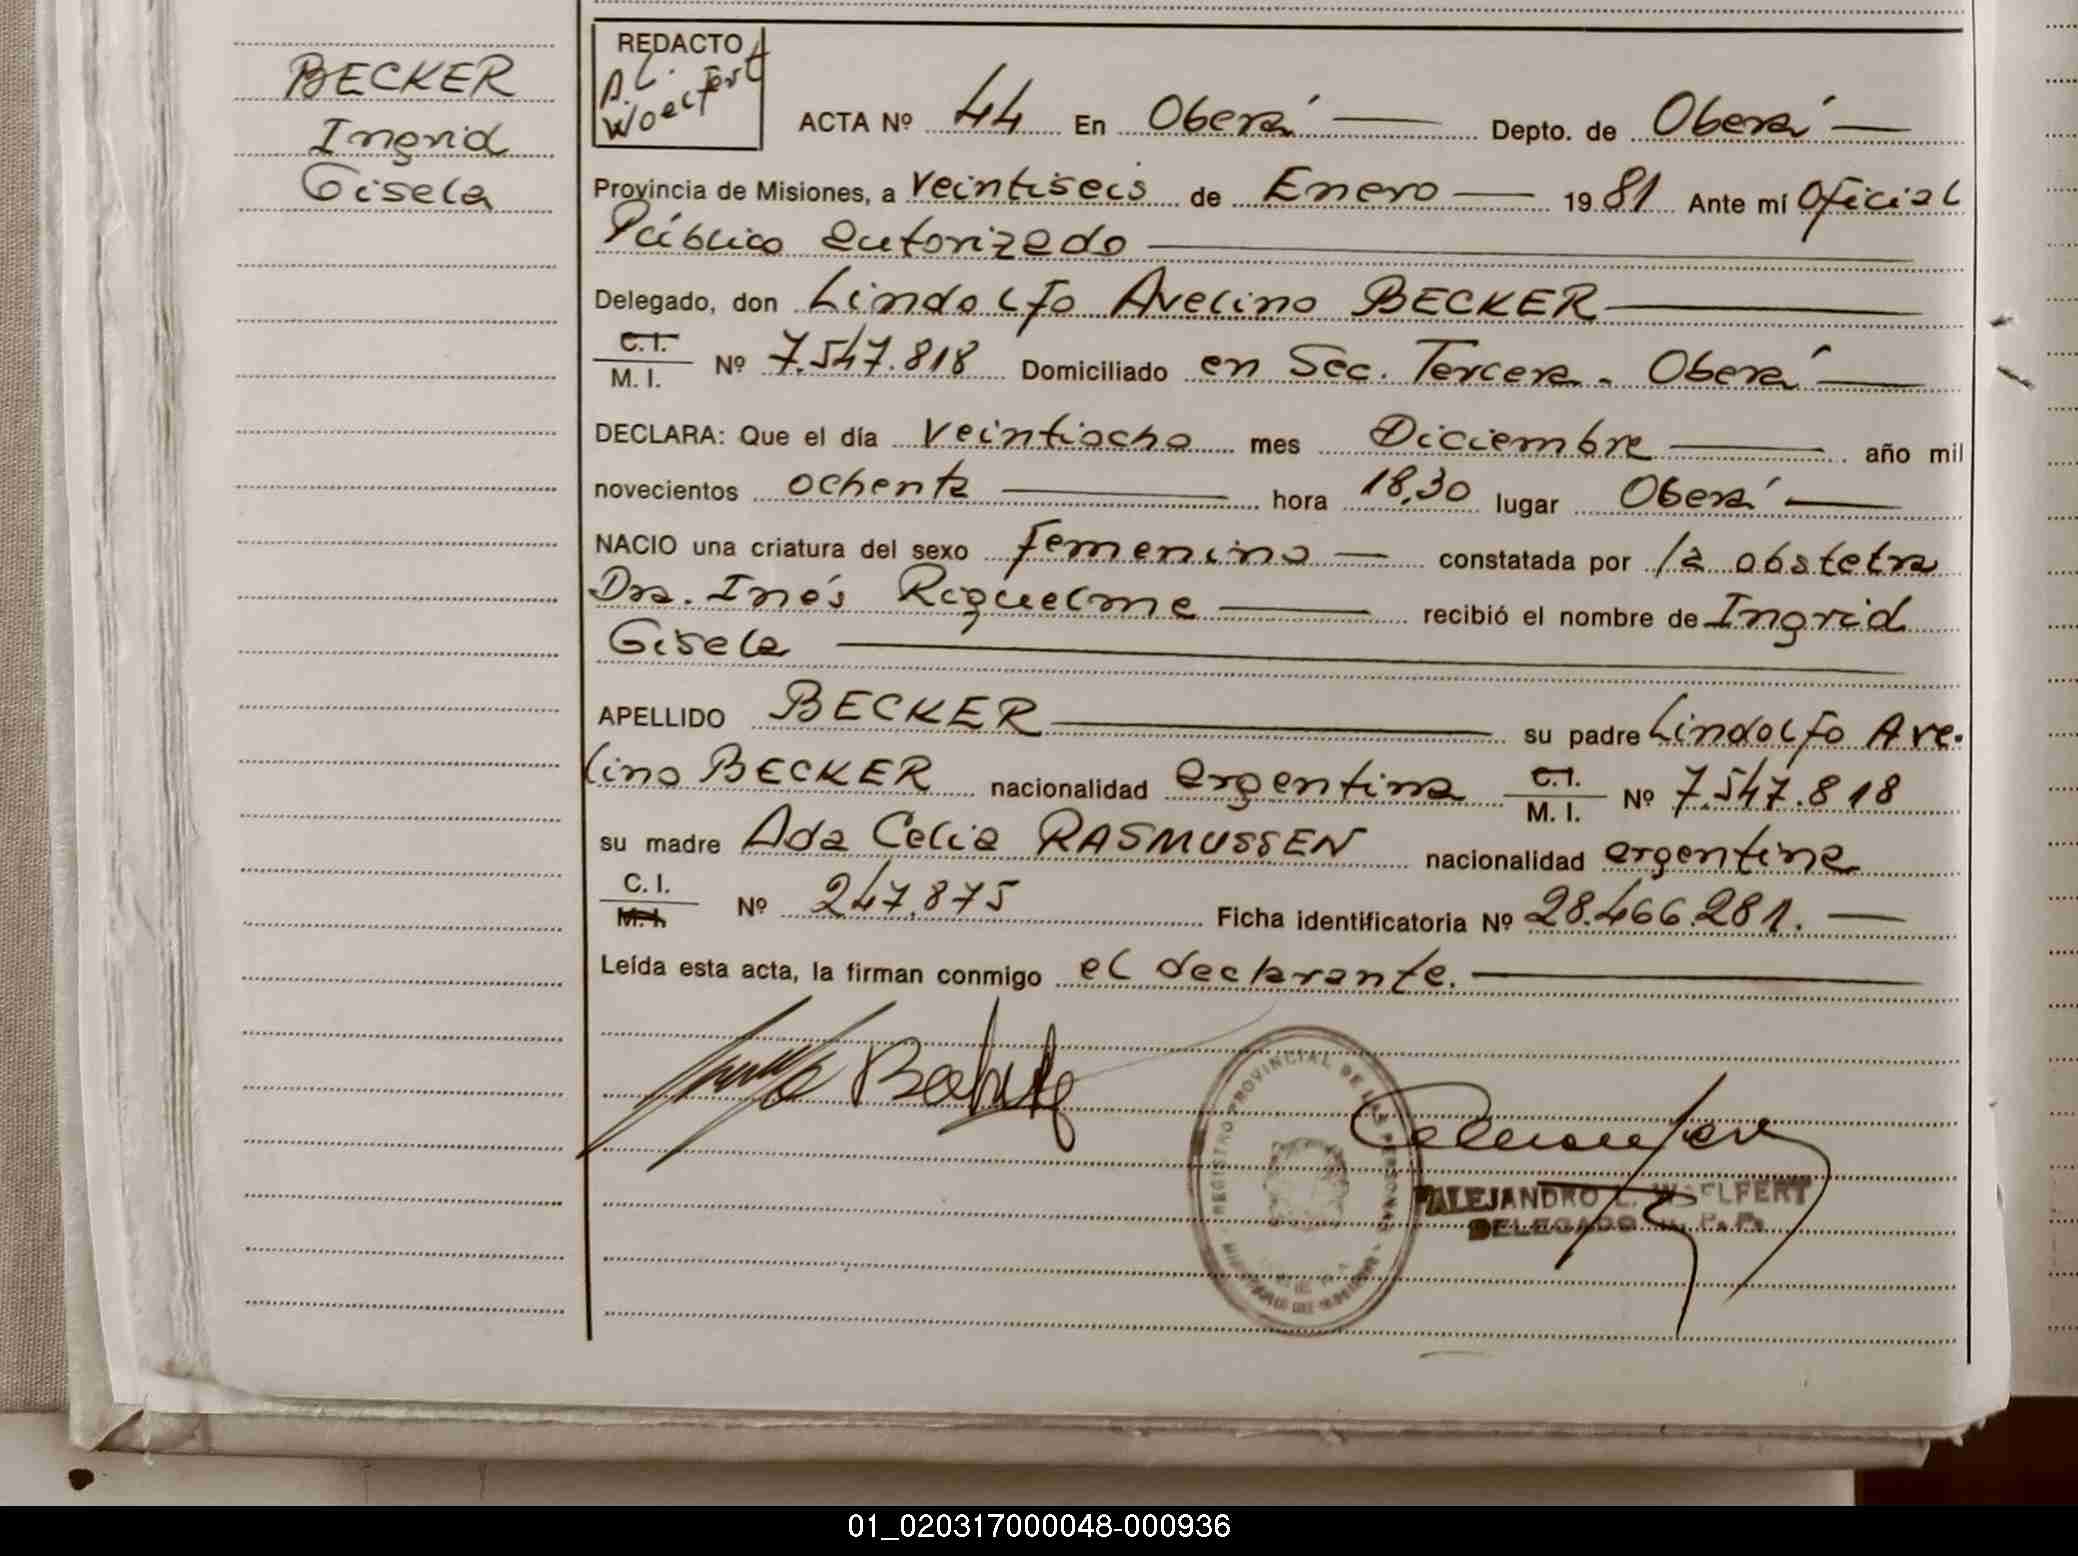 BECKER
Ingrid
Gisela
REDACTO
A.L.
Woelfert
ACTA Nº 44 En Oberá Depto. de Oberá
Provincia de Misiones, a veintiseis de Enero 1981 Ante mí Oficial
Público autorizado
Delegado, don Lindolfo Avelino BECKER
C. I.
M. I. Nº 7.547.818 Domiciliado en Sec. Tercera - Oberá
DECLARA: Que el día veintiocho mes Diciembre año mil
novecientos ochenta hora 18,30 lugar Oberá
NACIO una criatura del sexo femenino constatada por la obstetra
Dra. Inés Riquelme recibió el nombre de Ingrid
Gisela
APELLIDO BECKER su padre Lindolfo Ave-
lino BECKER nacionalidad argentina C. I. M. I. Nº 7.547.818
su madre Ada Celia RASMUSSEN nacionalidad argentina
C. I.
M. I. Nº 247.875 Ficha identificatoria Nº 28.466.281.
Leída esta acta, la firman conmigo el declarante.
REGISTRO PROVINCIAL DE LAS PERSONAS
ALEJANDRO L. WOELFERT
DELEGADO R. P. P.
01_020317000048-000936